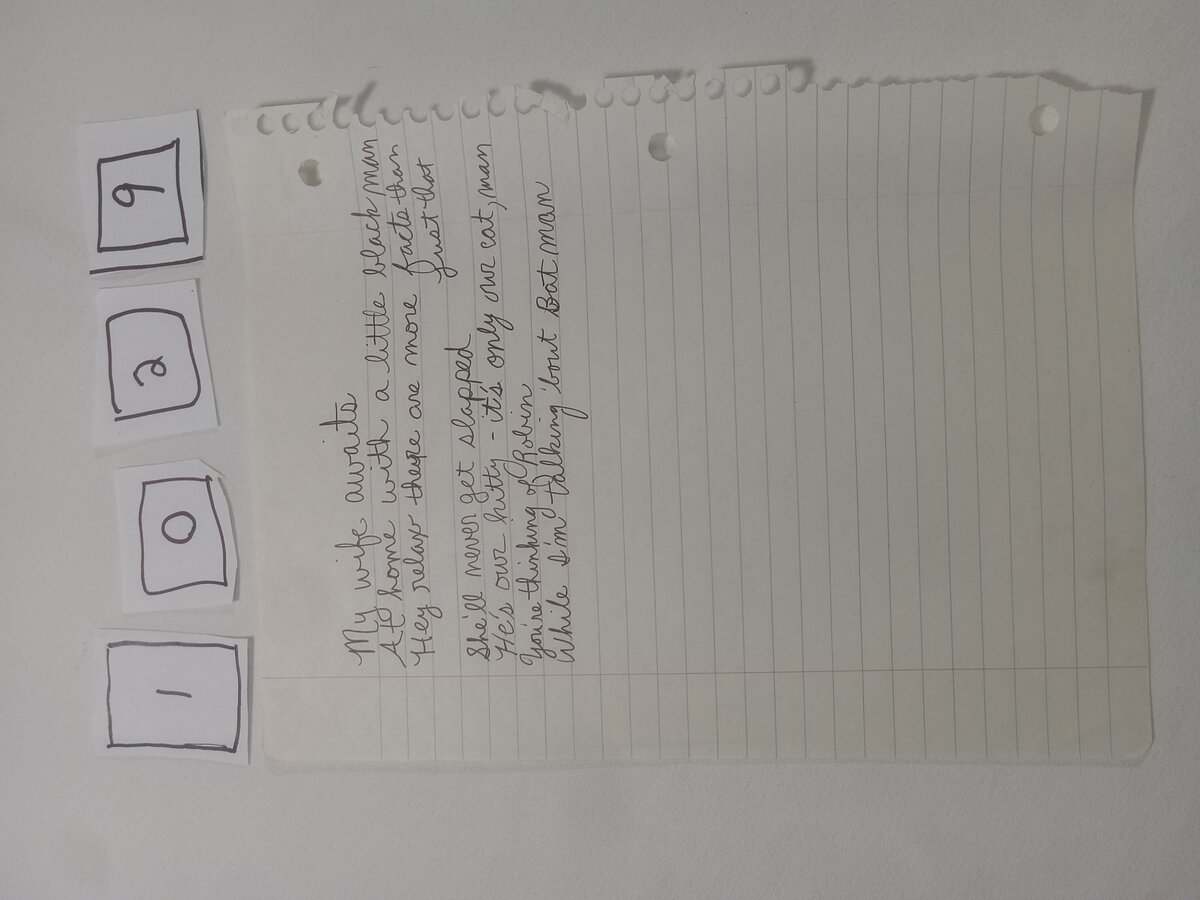 1 0 2 9
My wife awaits
At home with a little black man
Hey relax there are more facts than
just that
She'll never get slapped
He's our kitty - it's only our cat, man
You're thinking of Robin
While I'm talking 'bout Bat man